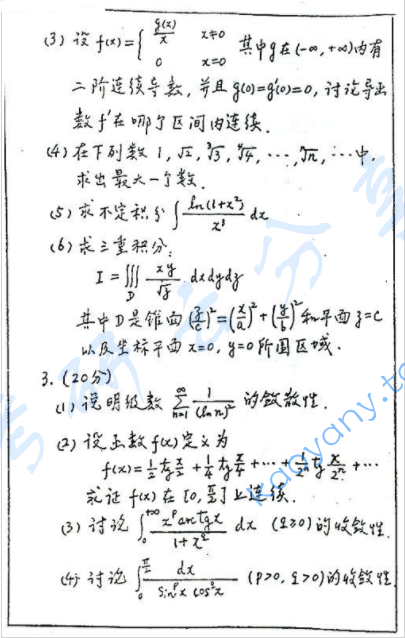 (3) 设 f(x)={ g(x)/x  x≠0
0  x=0  其中g在(-∞,+∞)内有
二阶连续导数,并且g(0)=g'(0)=0,讨论导出
数f'在哪个区间内连续.
(4)在下列数 1,√2,∛3,∜4,…,ⁿ√n,…中,
求出最大一个数.
(5)求不定积分∫ ln(1+x²)/x³ dx
(6)求三重积分:
I=∭_D xy/√z dxdydz
其中D是锥面(z/c)²=(x/a)²+(y/b)²和平面z=c
以及坐标平面x=0,y=0所围区域.
3.(20分)
(1)说明级数 ∑_{n=1}^∞ 1/(ln n)² 的敛散性.
(2)设函数f(x)定义为
f(x)=1/2 tg x/2+1/4 tg x/4+…+1/2ⁿ tg x/2ⁿ+…
求证f(x)在[0,π/2]上连续.
(3)讨论 ∫_0^{+∞} x^p arctgx/(1+x^q) dx (q≥0)的收敛性.
(4)讨论 ∫_0^{π/2} dx/(sin^p x cos^q x) (p>0,q>0)的收敛性.
kaoyany.to